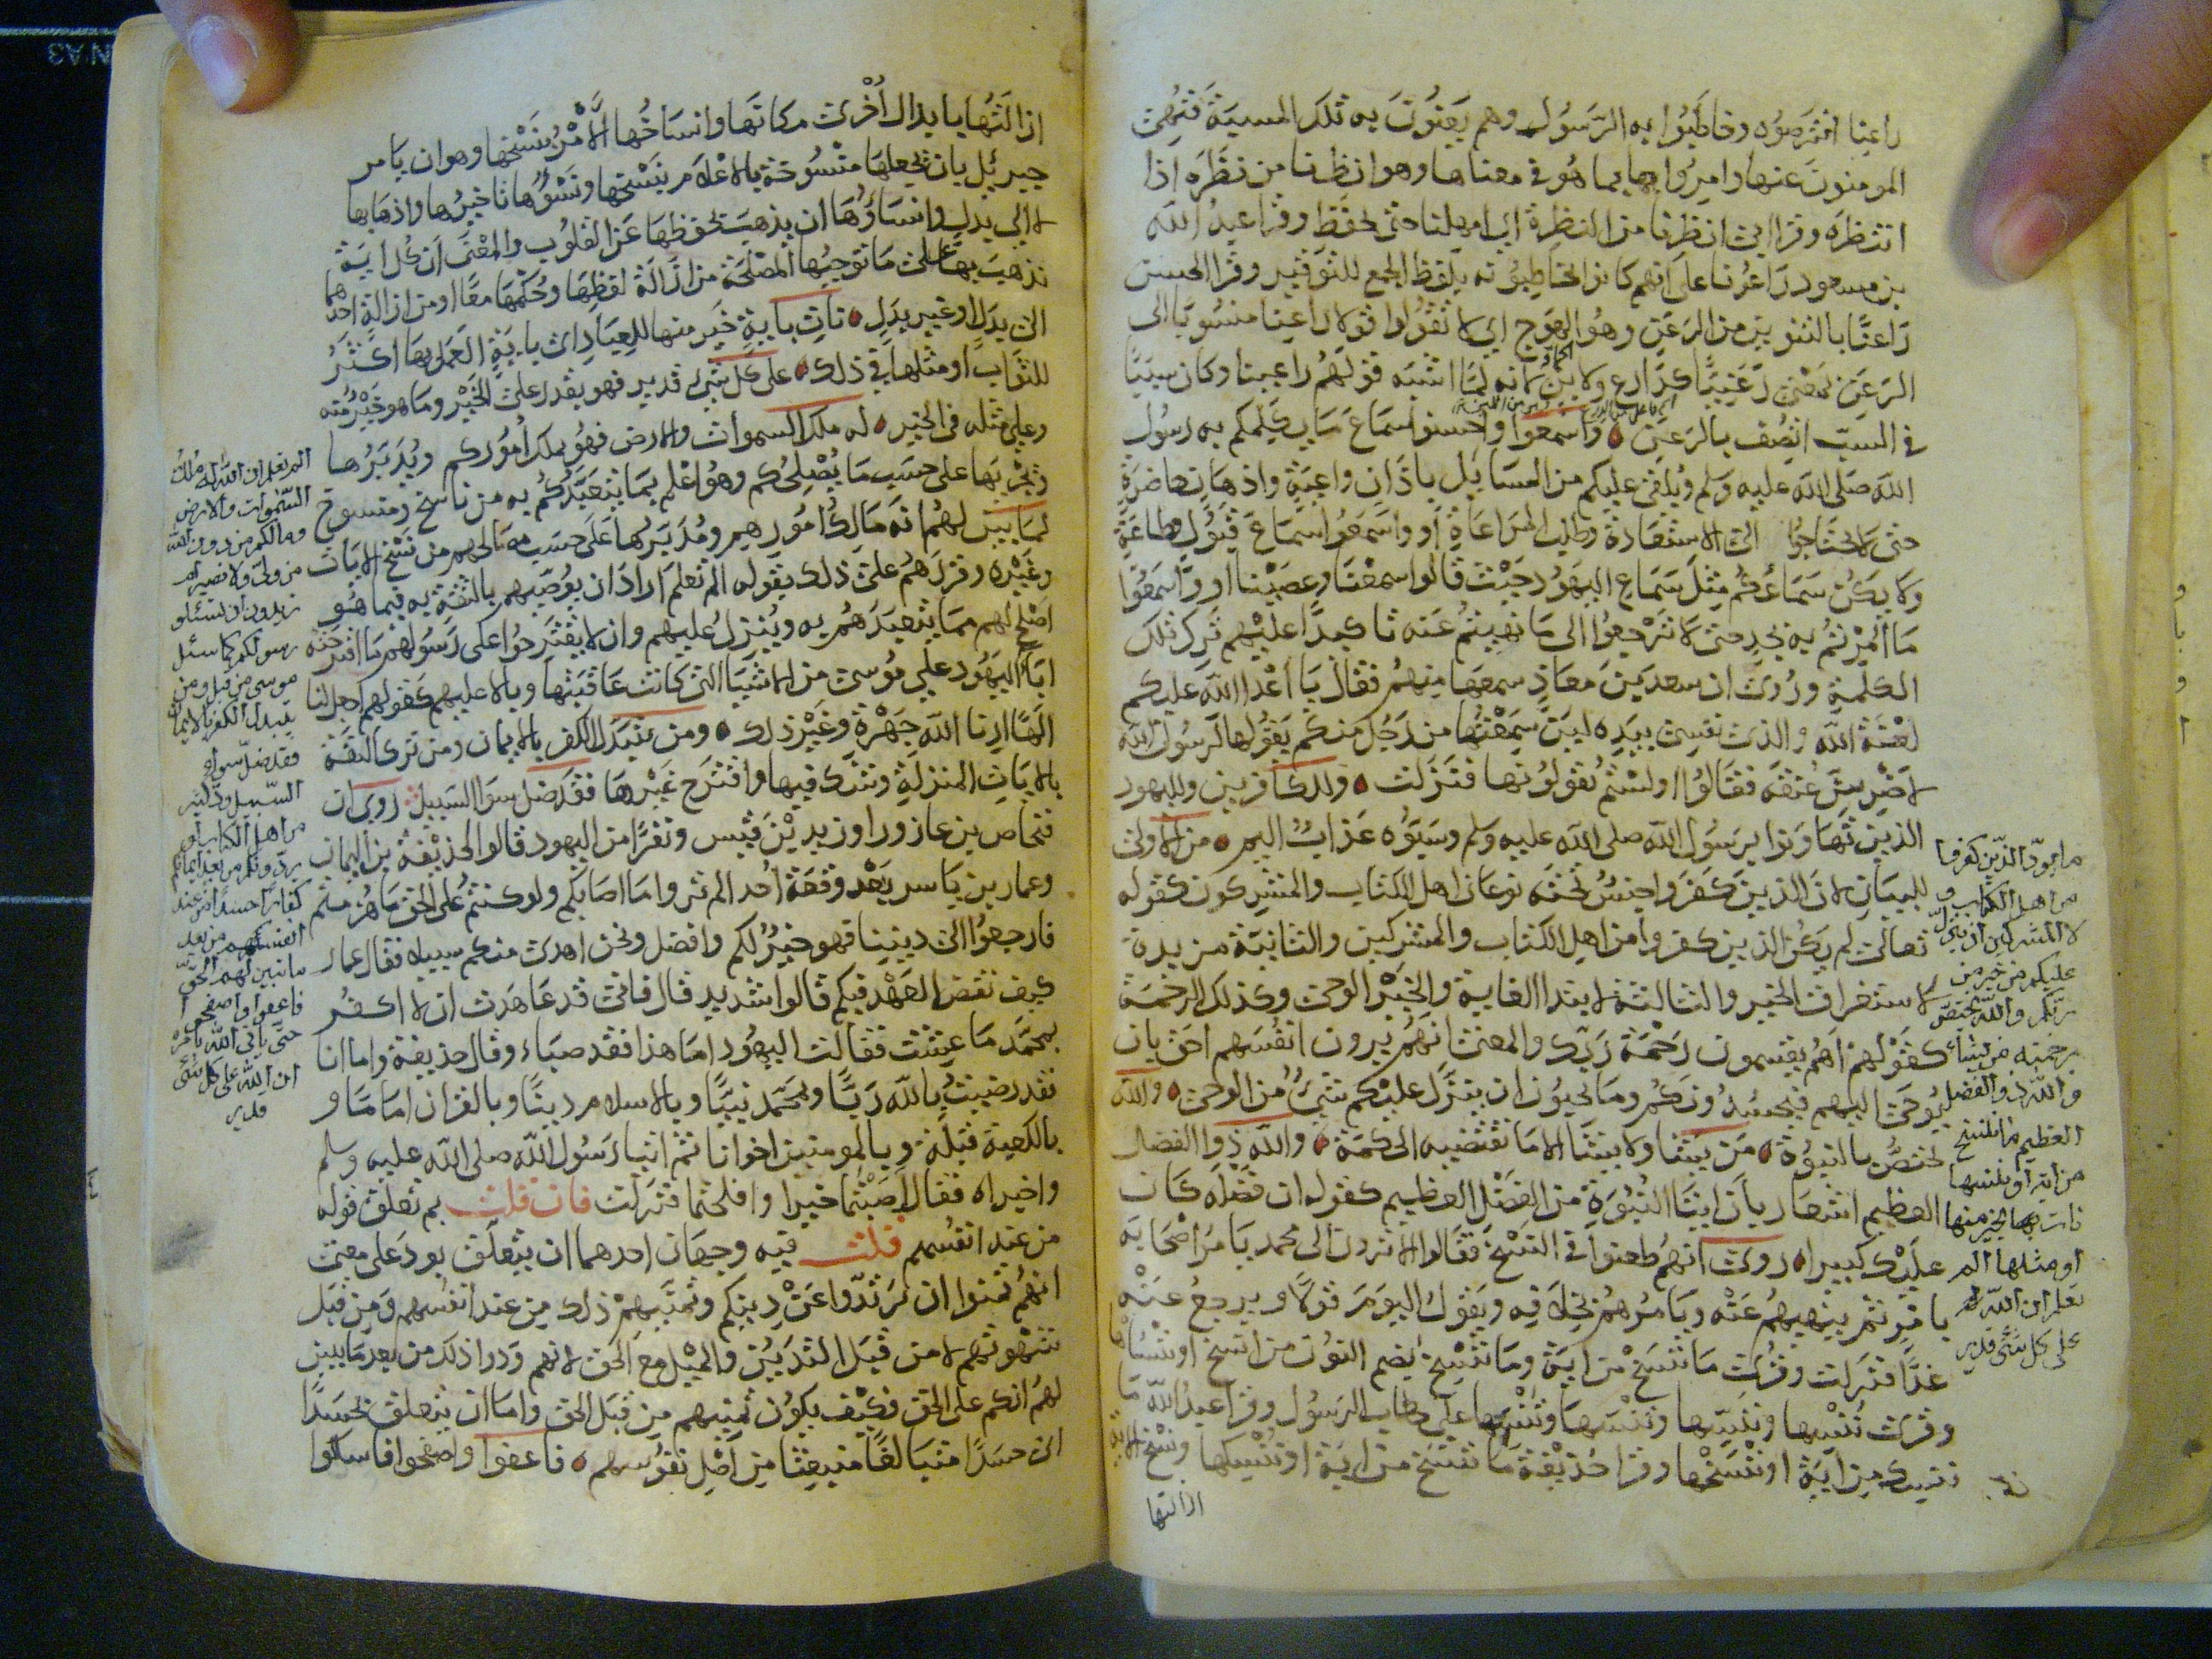 راعنا افترصوه وخاطبوا به الرسول وهم يعنون به تلك المسبة فنهى
المومنون عنها وامروا بها بما هو في معناها وهو انظرنا من نظره اذا
انتظره وقرا ابى انظرنا من النظرة اى امهلنا حتى نحفظ وقرا عبد الله
بن مسعود راعونا على انهم كانوا يخاطبونه بلفظ الجمع للتوقير وقرا الحسن
راعنا بالتنوين من الرعن وهو الهوج اى لا تقولوا قولا راعنا منسوبا الى
الرعن بمعنى رعنيا كدارع ولابن لانه لما اشبه قولهم راعينا وكان سببا
في السب اتصف بالرعن واسمعوا واحسنوا سماع ما يكلمكم به رسول
الله صلى الله عليه وسلم ويلقى عليكم من المسايل باذان واعية واذهان حاضرة
حتى لا تحتاجوا الى الاستعادة وطلب المراعاة او واسمعوا سماع قبول وطاعة
ولا يكن سماعكم مثل سماع اليهود حيث قالوا سمعنا وعصينا او واسمعوا
ما امرتم به بجد حتى لا ترجعوا الى ما نهيتم عنه تاكيدا عليهم ترك تلك
الكلمة وروى ان سعد بن معاذ سمعها منهم فقال يا اعدا الله عليكم
لعنة الله والذى نفسى بيده لين سمعتها من رجل منكم يقولها لرسول الله
لاضربن عنقه فقالوا اولستم تقولونها فنزلت وللكافرين ولليهود
الذين تهاونوا برسول الله صلى الله عليه وسلم وسبوه عذاب اليم من الاولى
للبيان لان الذين كفروا جنس تحته نوعان اهل الكتاب والمشركون كقوله
تعالى لم يكن الذين كفروا من اهل الكتاب والمشركين والثانية مزيدة
لاستغراق الخير والثالثة لابتدا الغاية والخير الوحى وكذلك الرحمة
كقولهم اهم يقسمون رحمة ربك والمعنى انهم يرون انفسهم احق بان
يوحى اليهم فيحسدونكم وما يحبون ان ينزل عليكم شى من الوحى والله
يختص بالنبوة من يشا ولا يشا الا ما تقتضيه الحكمة والله ذوا الفضل
العظيم اشعار بان ايتا النبوة من الفضل العظيم كقوله ان فضله كان
عليك كبيرا روى انهم طعنوا في النسخ فقالوا الا ترون الى محمد يامر اصحابه
بامر ثم ينهيهم عنه ويامرهم بخلافه ويقول اليوم قولا ويرجع عنه
غدا فنزلت وقرى ما ننسخ من اية وما ننسخ بضم النون من انسخ او ننساها
وقرى ننسها وننسها وننسها وتنسها على خطاب الرسول وقرا عبد الله ما
ننسك من اية او ننسخها وقرا حذيفة ما ننسخ من اية او ننسكها ونسخ الاية
ازالتها
ما يود الذين كفروا
من اهل الكتاب و
لا المشركين ان ينزل
عليكم من خير من
ربكم والله يختص
برحمته من يشاء
والله ذو الفضل
العظيم ما ننسخ
من اية او ننسها
نات بخير منها
او مثلها الم
تعلم ان الله
على كل شئ قدير
ازالتها يابدال اخرى مكانها وانساخها الامر بنسخها وهو ان يامر
جبرئيل بان يجعلها منسوخة بالاعلام بنسخها ونسؤها تاخيرها واذهابها
لا الى بدل وانساؤها ان يذهب بحفظها عن القلوب والمعنى ان كل اية
نذهب بها على ما توجبها المصلحة من ازالة لفظها وحكمها معا او من ازالة احدهما
الى بدل او غير بدل نات باية خير منها للعباد اى باية العمل بها اكثر
للثواب او مثلها في ذلك على كل شى قدير فهو يقدر على الخير وما هو خير منه
وعلى مثله في الخير له ملك السموات والارض فهو يملك اموركم ويدبرها
ويجريها على حسب ما يصلحكم وهو اعلم بما يتعبدكم به من ناسخ ومنسوخ
لما بين لهم انه مالك امورهم ومدبرها على حسب مصالحهم من نسخ الايات
وغيره وقررهم على ذلك بقوله الم تعلم اراد ان يوصيهم بالثقة به فيما هو
اصلح لهم مما يتعبدهم به وينزل عليهم وان لا يقترحوا على رسولهم ما اقترحته
اباء اليهود على موسى من الاشيا التى كانت عاقبتها وبالا عليهم كقولهم اجعل لنا
الها ارنا الله جهرة وغير ذلك ومن يتبدل الكفر بالايمان ومن ترك الثقة
بالايات المنزلة وشك فيها واقترح غيرها فقد ضل سوا السبيل روى ان
فنحاص بن عازورا وزيد بن قيس ونفرا من اليهود قالوا لحذيفة بن اليمان
وعمار بن ياسر بعد وقعة احد الم تروا ما اصابكم ولو كنتم على الحق ما هزمتم
فارجعوا الى ديننا فهو خير لكم وافضل ونحن اهدى منكم سبيلا فقال عمار
كيف نقض العهد فيكم قالوا شديد قال فانى قد عاهدت ان لا اكفر
بمحمد ما عشت فقالت اليهود اما هذا فقد صباء وقال حذيفة واما انا
فقد رضيت بالله ربا وبمحمد نبيا وبالاسلام دينا وبالقران اماما و
بالكعبة قبلة وبالمومنين اخوانا ثم اتيا رسول الله صلى الله عليه وسلم
واخبراه فقال اصبتما خيرا وافلحتما فنزلت فان قلت بم تعلق قوله
من عند انفسهم قلت فيه وجهان احدهما ان يتعلق بود على معنى
انهم تمنوا ان ترتدوا عن دينكم وتمنيهم ذلك من عند انفسهم ومن قبل
شهوتهم لا من قبل التدين والميل مع الحق لانهم ودوا ذلك من بعد ما تبين
لهم انكم على الحق فكيف يكون تمنيهم من قبل الحق واما ان يتعلق بحسدا
اى حسدا متبالغا منبعثا من اصل نفوسهم فاعفوا واصفحوا فاسلكوا
الم تعلم ان الله له ملك
السموات والارض
وما لكم من دون الله
من ولى ولا نصير ام
تريدون ان تسئلوا
رسولكم كما سئل
موسى من قبل ومن
يتبدل الكفر بالايمان
فقد ضل سواء
السبيل ود كثير
من اهل الكتاب لو
يردونكم من بعد ايمانكم
كفارا حسدا من عند
انفسهم من بعد
ما تبين لهم الحق
فاعفوا واصفحوا
حتى ياتى الله بامره
ان الله على كل شئ
قدير